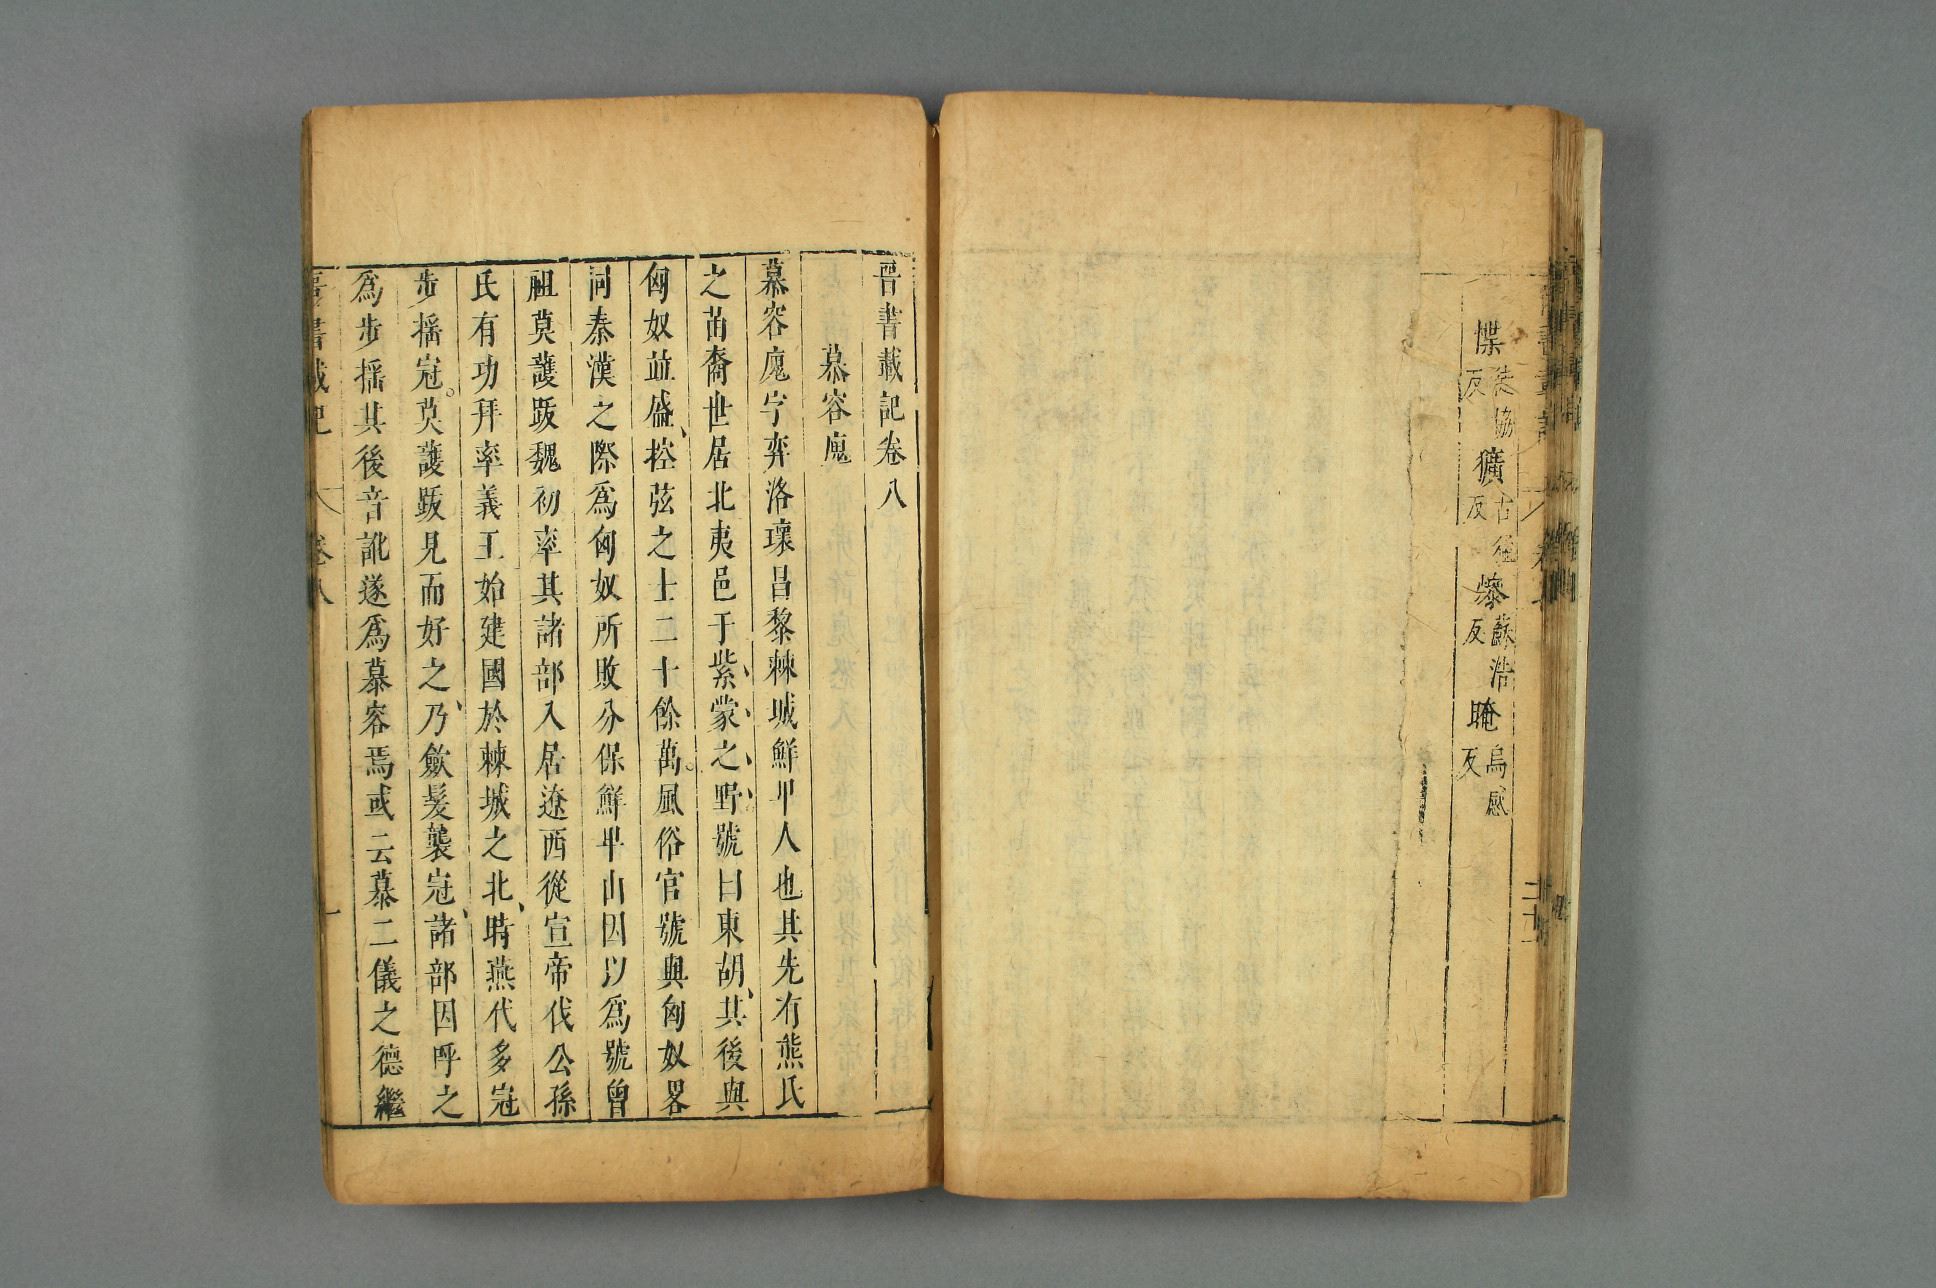 慄徒協反獷古猛反㿋蘇浩反晻烏感反
晉書載記卷八
慕容廆
慕容廆字弈洛瓌昌黎棘城鮮卑人也其先有熊氏
之苗裔世居北夷邑于紫蒙之野號曰東胡其後與
匈奴並盛控弦之士二十餘萬風俗官號與匈奴畧
同秦漢之際爲匈奴所敗分保鮮卑山因以爲號曾
祖莫護跋魏初率其諸部入居遼西從宣帝伐公孫
氏有功拜率義王始建國於棘城之北時燕代多冠
步搖冠莫護跋見而好之乃斂髮襲冠諸部因呼之
爲步搖其後音訛遂爲慕容焉或云慕二儀之德繼
晉書載記 卷八 一